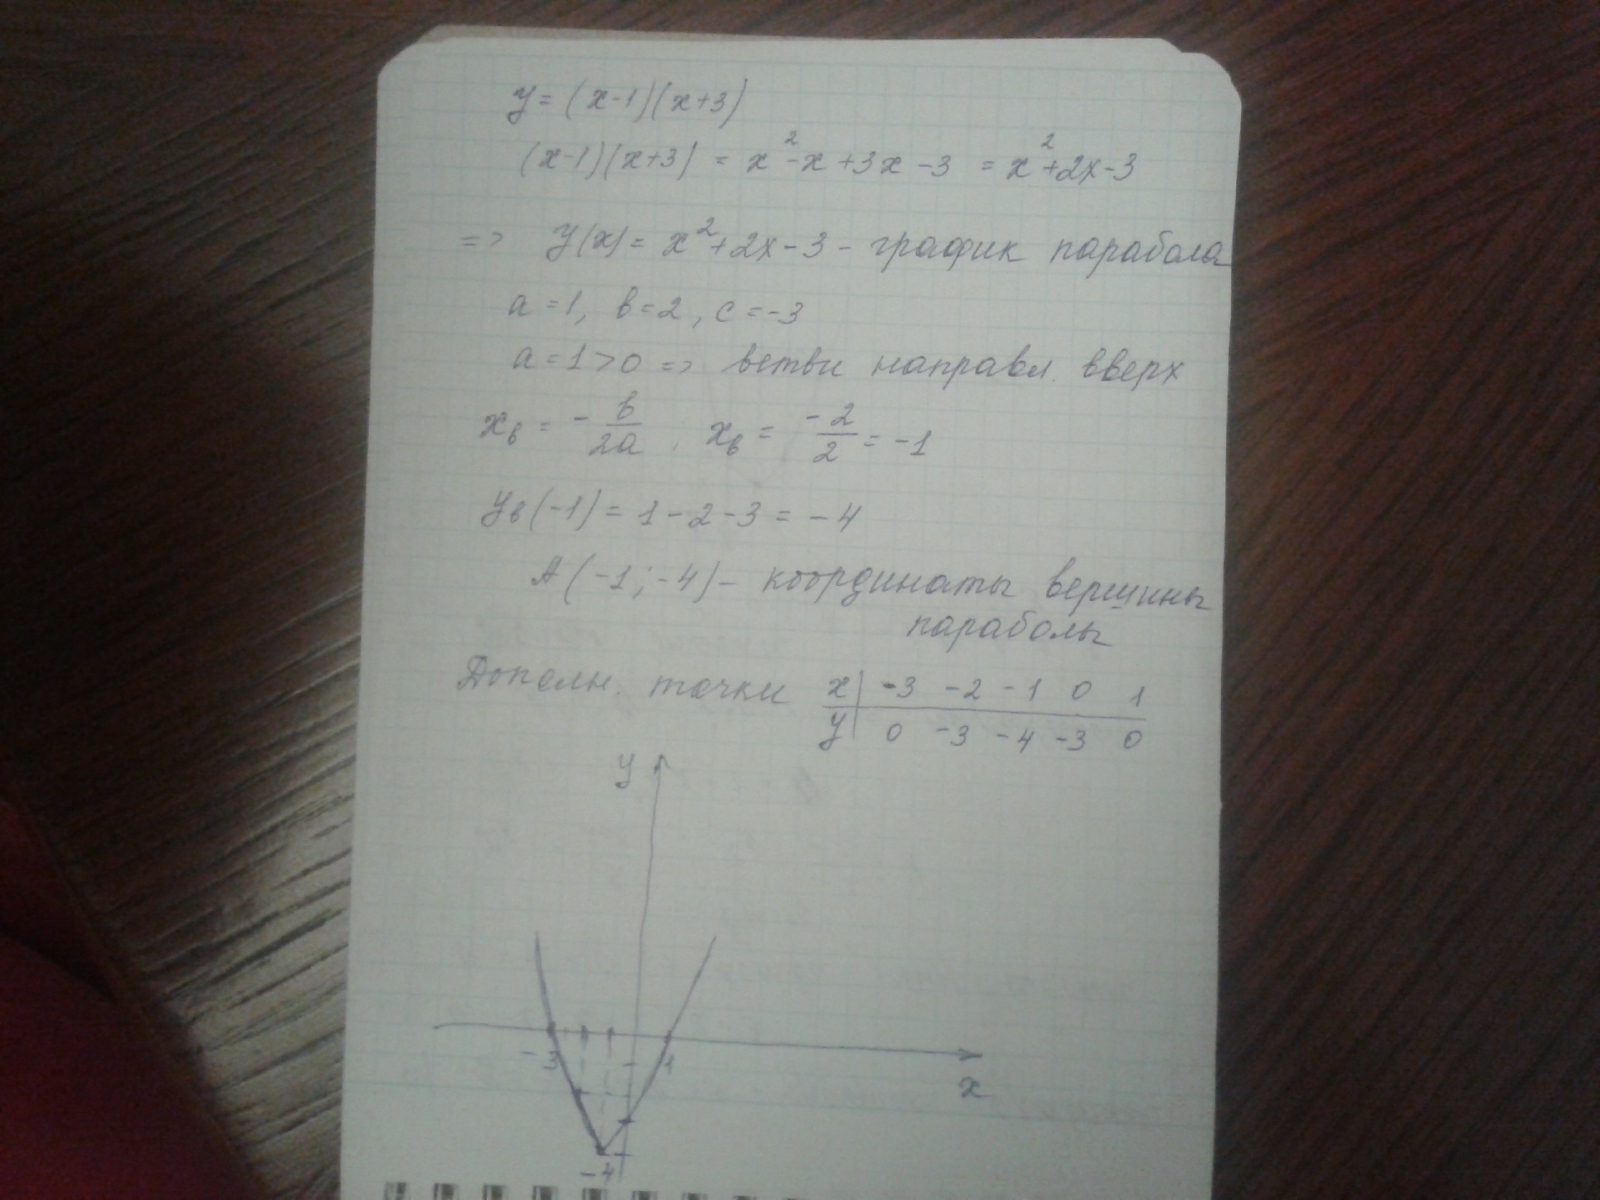 y = (x-1)(x+3)
(x-1)(x+3) = x² - x + 3x - 3 = x² + 2x - 3
=> y(x) = x² + 2x - 3 - график парабола
a = 1, в = 2, c = -3
a = 1 > 0 => ветви направл. вверх
xв = - в/2a , xв = -2/2 = -1
yв(-1) = 1 - 2 - 3 = -4
A(-1; -4) - координаты вершины
параболы
Дополн. точки x | -3 -2 -1 0 1
y | 0 -3 -4 -3 0
y
-3 1
x
-4